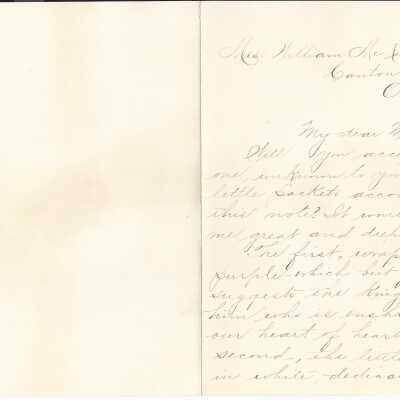 Mrs. William Mc
Canton
O
My dear M
Will you acc
one unknown to yo
little sachets acco
this note? It wou
me great and deep
The first, wrap
purple which but
suggests the King
him who is enshr
our heart of heart
second, the little
in white dedica